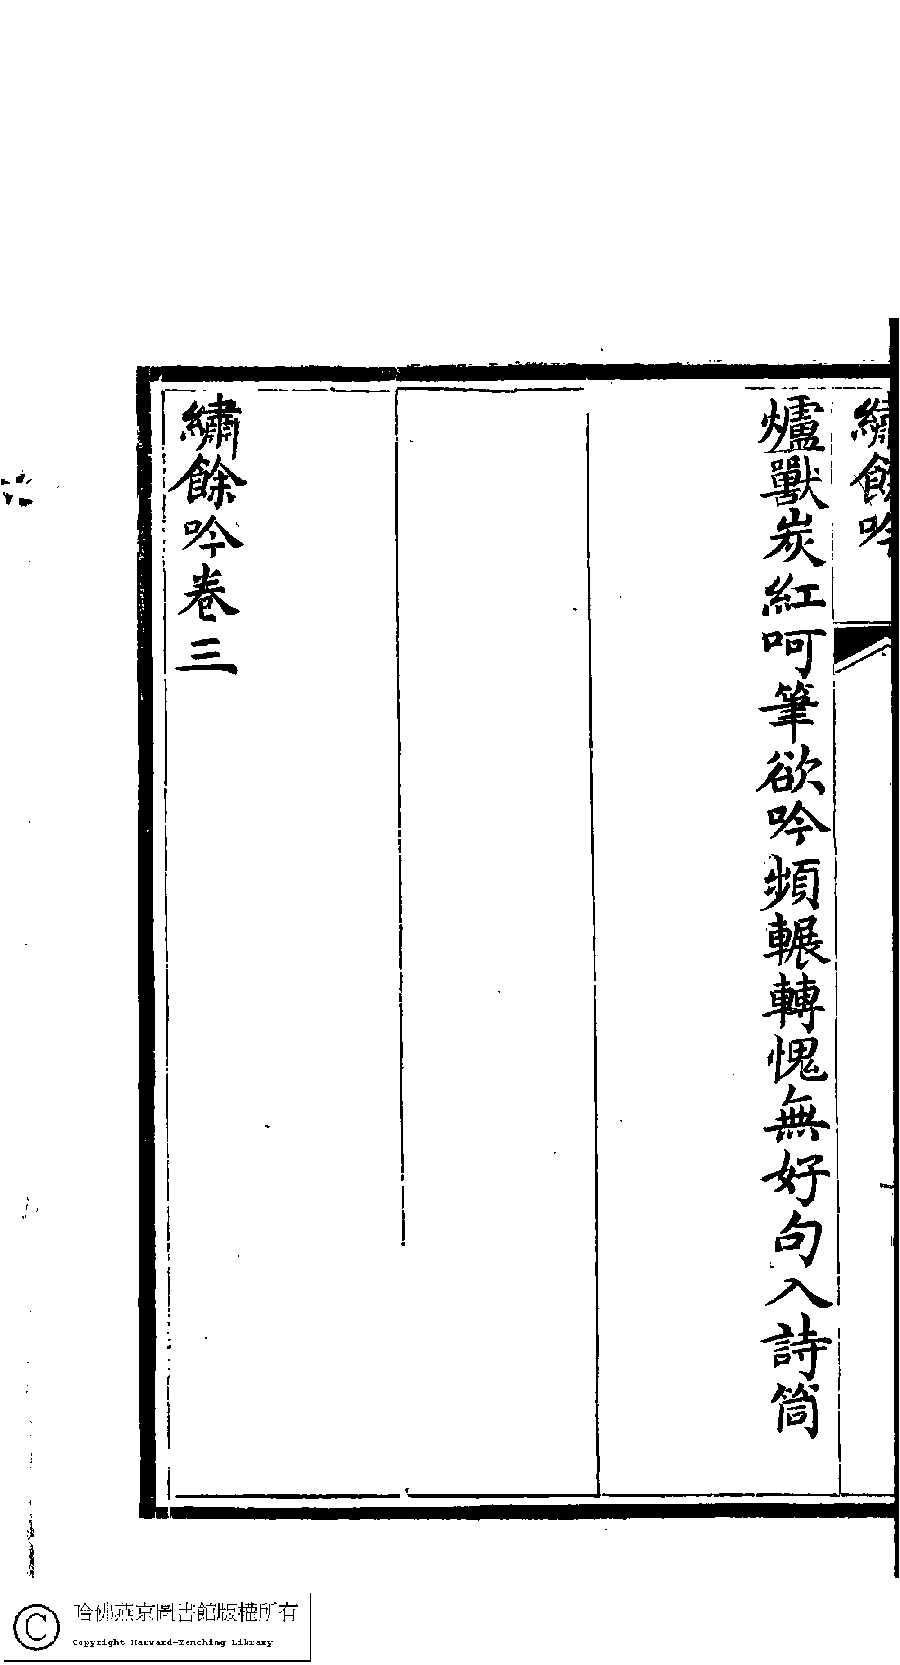 繡餘吟
爐獸炭紅呵筆欲吟頻輾轉愧無好句入詩筒
繡餘吟卷三
哈佛燕京圖書館版權所有
Copyright Harvard-Yenching Library